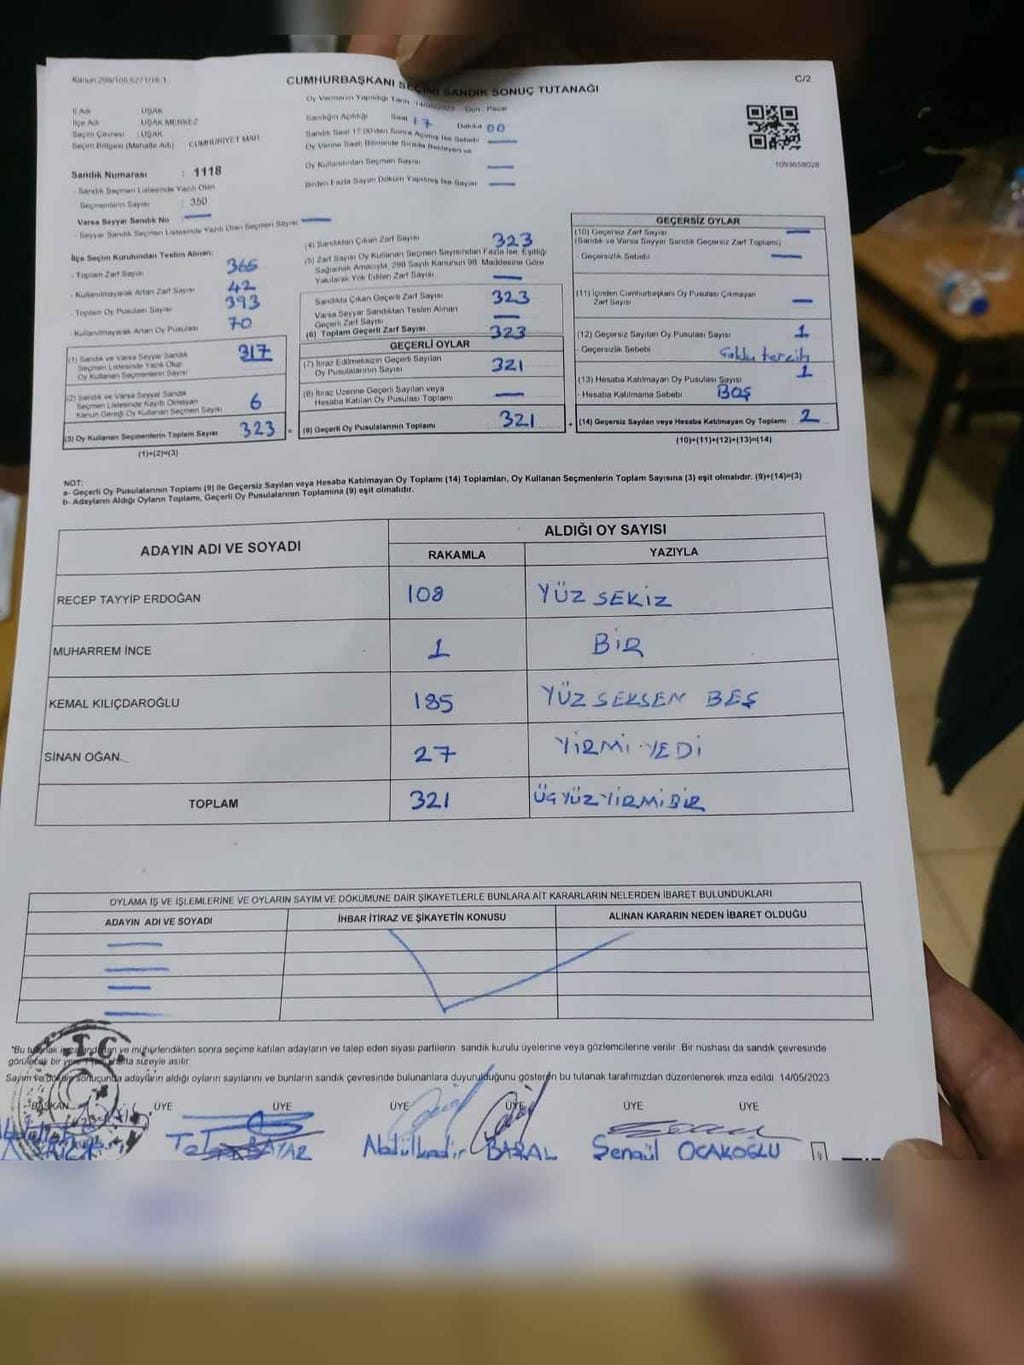 Kanun 298/105,6271/18-1
CUMHURBAŞKANI SEÇİMİ SANDIK SONUÇ TUTANAĞI
C/2
İl Adı : UŞAK
İlçe Adı : UŞAK MERKEZ
Seçim Çevresi : UŞAK
Seçim Bölgesi (Mahalle Adı) CUMHURİYET MAH.
Sandık Numarası : 1118
- Sandık Seçmen Listesinde Yazılı Olan
Seçmenlerin Sayısı : 350
Varsa Seyyar Sandık No
- Seyyar Sandık Seçmen Listesinde Yazılı Olan Seçmen Sayısı
Oy Vermenin Yapıldığı Tarih 14/05/2023 Gün Pazar
Sandığın Açıldığı Saat 17 Dakika 00
Sandık Saat 17:00'den Sonra Açılmış İse Sebebi
Oy Verme Saati Bitiminde Sırada Bekleyen ve
Oy Kullandırılan Seçmen Sayısı
Birden Fazla Sayım Döküm Yapılmış İse Sayısı
1093658028
İlçe Seçim Kurulundan Teslim Alınan:
- Toplam Zarf Sayısı 365
- Kullanılmayarak Artan Zarf Sayısı 42
- Toplam Oy Pusulası Sayısı 393
- Kullanılmayarak Artan Oy Pusulası 70
(1) Sandık ve Varsa Seyyar Sandık
Seçmen Listesinde Yazılı Olup
Oy Kullanan Seçmenlerin Sayısı 317
(2) Sandık ve Varsa Seyyar Sandık
Seçmen Listesinde Kayıtlı Olmayan
Kanun Gereği Oy Kullanan Seçmen Sayısı 6
(3) Oy Kullanan Seçmenlerin Toplam Sayısı 323
(1)+(2)=(3)
(4) Sandıktan Çıkan Zarf Sayısı 323
(5) Zarf Sayısı Oy Kullanan Seçmen Sayısından Fazla İse, Eşitliği
Sağlamak Amacıyla, 298 Sayılı Kanunun 98. Maddesine Göre
Yakılarak Yok Edilen Zarf Sayısı
Sandıkta Çıkan Geçerli Zarf Sayısı 323
Varsa Seyyar Sandıktan Teslim Alınan
Geçerli Zarf Sayısı
(6) Toplam Geçerli Zarf Sayısı 323
GEÇERLİ OYLAR
(7) İtiraz Edilmeksizin Geçerli Sayılan
Oy Pusulasının Sayısı 321
(8) İtiraz Üzerine Geçerli Sayılan veya
Hesaba Katılan Oy Pusulası Toplamı
(9) Geçerli Oy Pusulalarının Toplamı 321
GEÇERSİZ OYLAR
(10) Geçersiz Zarf Sayısı
(Sandık ve Varsa Seyyar Sandık Geçersiz Zarf Toplamı)
- Geçersizlik Sebebi
(11) İçinden Cumhurbaşkanı Oy Pusulası Çıkmayan
Zarf Sayısı
(12) Geçersiz Sayılan Oy Pusulası Sayısı 1
- Geçersizlik Sebebi tercih
(13) Hesaba Katılmayan Oy Pusulası Sayısı 1
- Hesaba Katılmama Sebebi BOŞ
(14) Geçersiz Sayılan veya Hesaba Katılmayan Oy Toplamı 2
(10)+(11)+(12)+(13)=(14)
NOT:
a- Geçerli Oy Pusulalarının Toplamı (9) ile Geçersiz Sayılan veya Hesaba Katılmayan Oy Toplamı (14) Toplamları, Oy Kullanan Seçmenlerin Toplam Sayısına (3) eşit olmalıdır. (9)+(14)=(3)
b- Adayların Aldığı Oyların Toplamı, Geçerli Oy Pusulalarının Toplamına (9) eşit olmalıdır.
ADAYIN ADI VE SOYADI
ALDIĞI OY SAYISI
RAKAMLA YAZIYLA
RECEP TAYYİP ERDOĞAN 108 YÜZ SEKİZ
MUHARREM İNCE 1 BİR
KEMAL KILIÇDAROĞLU 185 YÜZ SEKSEN BEŞ
SİNAN OĞAN 27 YİRMİ YEDİ
TOPLAM 321 ÜÇ YÜZ YİRMİ BİR
OYLAMA İŞ VE İŞLEMLERİNE VE OYLARIN SAYIM VE DÖKÜMÜNE DAİR ŞİKAYETLERLE BUNLARA AİT KARARLARIN NELERDEN İBARET BULUNDUKLARI
ADAYIN ADI VE SOYADI İHBAR İTİRAZ VE ŞİKAYETİN KONUSU ALINAN KARARIN NEDEN İBARET OLDUĞU
T.C.
"Bu tutanak imzalandıktan ve mühürlendikten sonra seçime katılan adayların ve talep eden siyasi partilerin sandık kurulu üyelerine veya gözlemcilerine verilir. Bir nüshası da sandık çevresinde
görülecek bir yere hafta süreyle asılır.
Sayım ve döküm sonucunda adayların aldığı oyların sayılarını ve bunların sandık çevresinde bulunanlara duyurulduğunu gösteren bu tutanak tarafımızdan düzenlenerek imza edildi 14/05/2023
BAŞKAN ÜYE ÜYE ÜYE ÜYE ÜYE ÜYE
Abdülkadir BARAL Şengül OCAKOĞLU